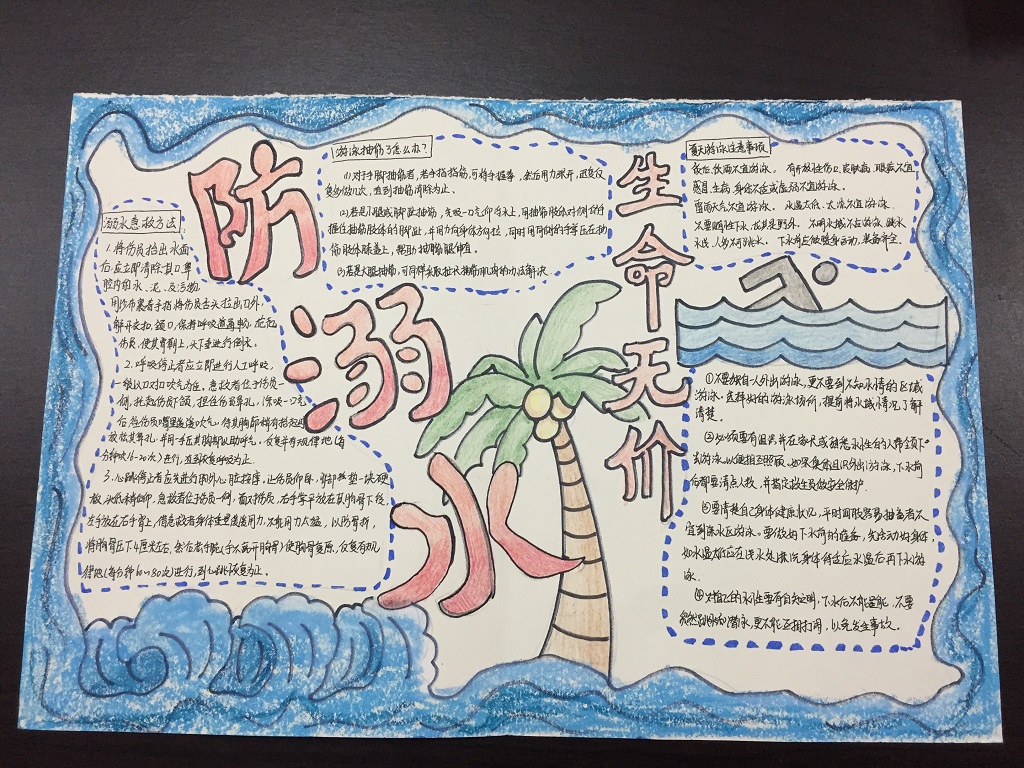 防溺水
生命无价
溺水急救方法
1.将伤员抬出水面
后应立即清除其口、鼻
腔内的水、泥、及污物,
用纱布裹着手指将伤员舌头拉出口外,
解开衣扣、领口,保持呼吸道通畅,抱起
伤员,使其背朝上,头下垂进行倒水。
2.呼吸停止者应立即进行人工呼吸,
一般以口对口吹气为佳。急救者位于伤员一
侧,托起伤员下颌,捏住伤员鼻孔,深吸一口气
后,往伤员嘴里缓缓吹气,待其胸廓稍有抬起时
放松其鼻孔,并用一手压其胸部以助呼气。反复并有规律地(每
分钟吹16-20次)进行,直到恢复呼吸为止。
3.心跳停止者应先进行胸外心脏按摩,让伤员仰卧,背部垫一块硬
板,头低稍后仰,急救者位于伤员一侧,面对伤员,右手掌平放在其胸骨下段,
左手放在右手背上,借急救者身体重量缓缓用力,不能用力太猛,以防骨折,
将胸骨压下4厘米左右,然后松手腕(手不离开胸骨)使胸骨复原,反复有规
律地(每分钟60~80次)进行,到心跳恢复为止。
游泳抽筋了怎么办?
(1)对于手脚抽筋者,若手指抽筋,可将手握拳,然后用力张开,迅速反
复多做几次,直到抽筋消除为止。
(2)若是小腿或脚趾抽筋,先吸一口气仰浮水上,用抽筋肢体对侧的手
握住抽筋肢体的脚趾,并用力向身体方向拉,同时用同侧的手掌压在抽
筋肢体膝盖上,帮助抽筋腿伸直。
(3)若是大腿抽筋,可同样采取拉长抽筋肌肉的办法解决。
夏天游泳注意事项
饭后、饮酒不宜游泳。有开放性伤口、皮肤病、眼疾不宜
感冒、生病、身体不适或虚弱不宜游泳。
雷雨天气不宜游泳。水温太低、太凉不宜游泳。
不要随性下水,尤其是野外。不明水域不去游泳、跳水
水浅、人多不可跳水。下水前应做暖身运动,装备齐全。
①不要独自一人外出游泳,更不要到不知水情的区域
游泳。选择好的游泳场所,提前将水域情况了解
清楚。
②必须要有组织并在家长或熟悉水性的人带领下
去游泳,以便相互照顾。如果集体组织外出游泳,下水前
后都要清点人数,并指定救生员做安全保护。
③要清楚自己身体健康状况,平时四肢容易抽筋者不
宜到深水区游泳。要做好下水前的准备,先活动好身体,
如水温太低应在浅水处擦洗身体,待适应水温后再下水游
泳。
④对自己的水性要有自知之明,下水后不能逞能,不要
贸然跳水和潜泳,更不能互相打闹,以免发生事故。